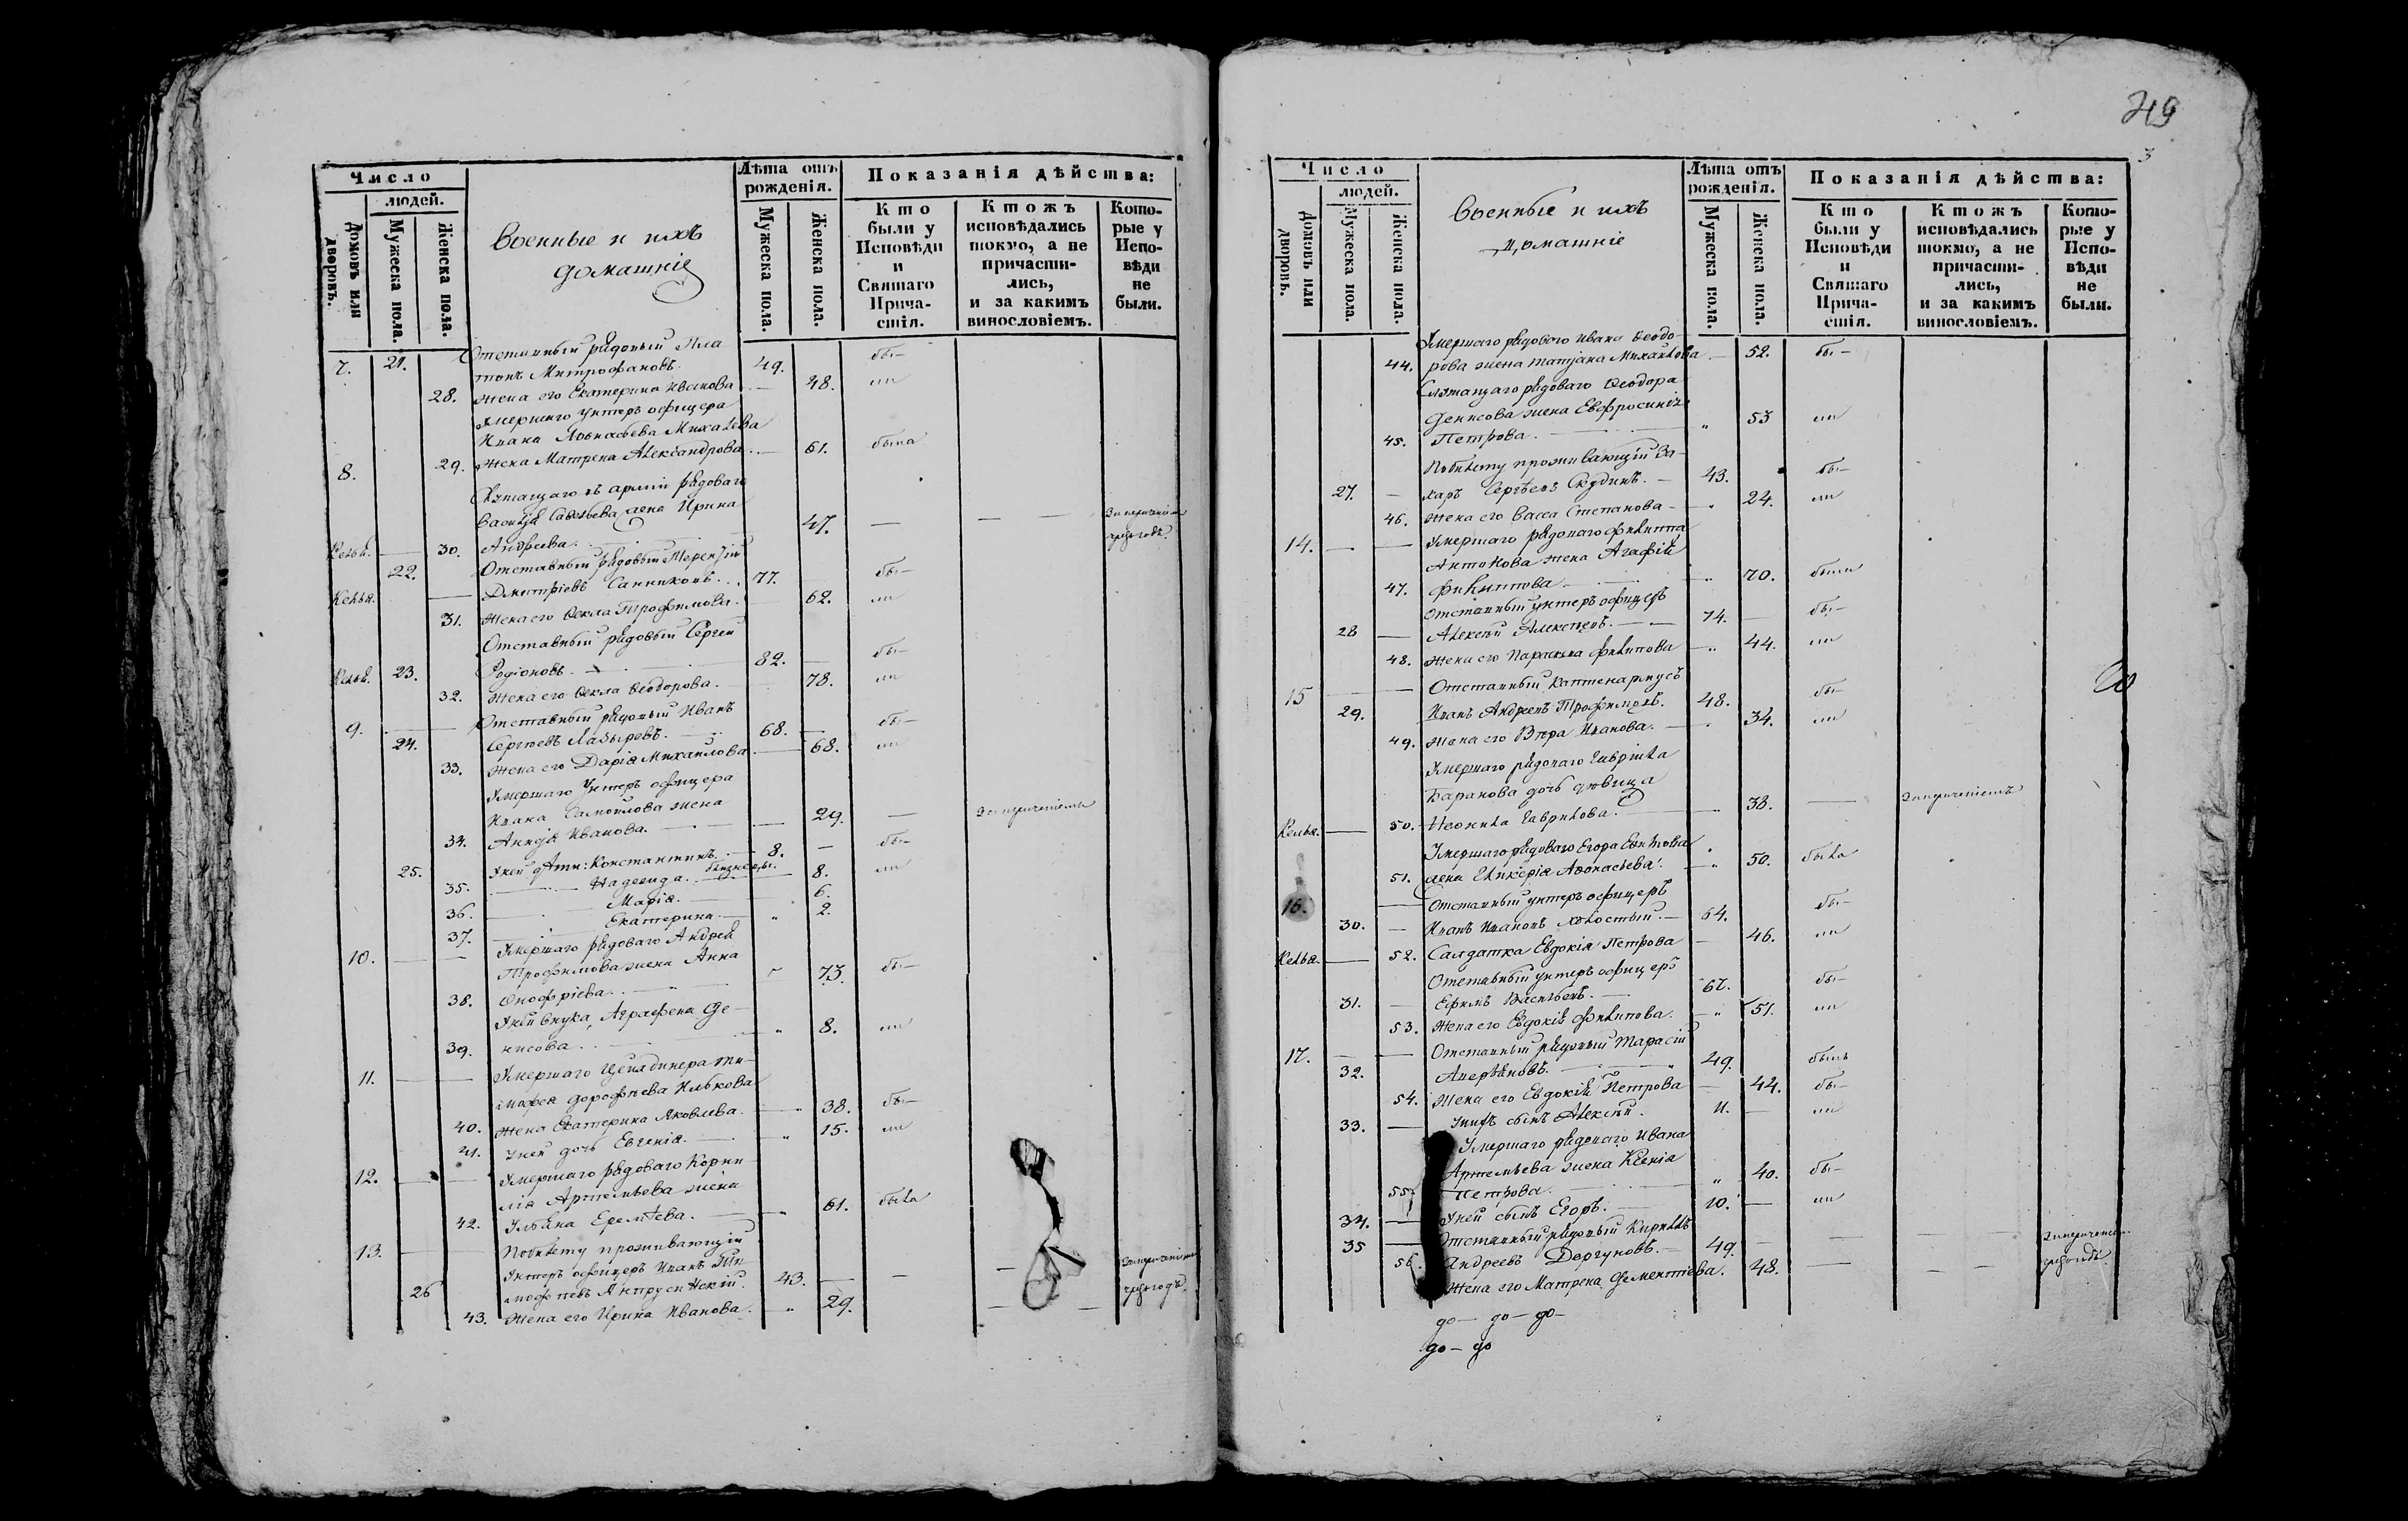 Число
людей.
Домовъ или дворовъ.
Мужеска пола.
Женска пола.
Военные и ихъ
домашніе
Лѣта отъ
рожденія.
Мужеска пола.
Женска пола.
Показанія дѣйства:
Кто
были у
Исповѣди
и
Святаго
Прича-
стія.
Ктожъ
исповѣдались
токмо, а не
причасти-
лись,
и за какимъ
винословіемъ.
Кото-
рые у
Испо-
вѣди
не
были.
7. 21. Отставный рядовый Пла
тонъ Митрофановъ. 49. бы—
28. Жена его Екатерина Иванова 48.
Умершаго унтеръ офицера
Ивана Афонасьева Михалева
8. 29. Жена Матрена Александрова. 61. была
Служащаго въ арміи рядоваго
Василья Савельева жена Ирина
Келья. 30. Андреева. 47.
22. Отставный рядовый Терентій
Келья. Дмитріевъ Санниковъ. 77. бы—
31. Жена его Ѳекла Трофимова. 62.
Отставный рядовый Сергей
Келья. 23. Родіоновъ. 82. бы—
32. Жена его Ѳекла Ѳеодорова. 78.
9. Отставный рядовый Иванъ
24. Сергѣевъ Лабыревъ. 68. бы—
33. Жена его Дарія Михайлова 68.
Умершаго Унтеръ офицера
Ивана Самойлова жена
34. Анна Иванова. 29.
25. У ней дѣти: Константинъ. 8. бы—
35. Надежда. близнецы. 8.
36. Марія. 6.
37. Екатерина. 2.
10. Умершаго рядоваго Андрея
Трофимова жена Анна
38. Онофріева. 73. бы—
У ней внука, Аграфена Де—
39. нисова. 8.
11. Умершаго Цейхдинера Ти—
мофея Дорофѣева Илькова
40. Жена Екатерина Яковлева. 38. бы—
41. У ней дочь Евгенія. 15.
12. Умершаго рядоваго Корни
лія Артемьева жена
42. Ульяна Еремѣева. 61. была
13. По билету проживающій
Унтеръ офицеръ Иванъ Ти
26 мофѣевъ 43.
43. Жена его Ирина Иванова. 29.
49
3
Число
людей.
Домовъ или дворовъ.
Мужеска пола.
Женска пола.
Военные и ихъ
домашніе
Лѣта отъ
рожденія.
Мужеска пола.
Женска пола.
Показанія дѣйства:
Кто
были у
Исповѣди
и
Святаго
Прича-
стія.
Ктожъ
исповѣдались
токмо, а не
причасти-
лись,
и за какимъ
винословіемъ.
Кото-
рые у
Испо-
вѣди
не
были.
Умершаго рядоваго Ивана Ѳеодо
44. рова жена Татьяна Михайлова 52. бы—
Служащаго рядоваго Ѳеодора
Денисова жена Евфросинія
45. Петрова. 53
По билету проживающій За—
27. харъ Сергѣевъ Скудинъ. 43. бы—
46. Жена его Васса Степанова 24.
14. Умершаго рядоваго Филиппа
Антонова жена Агафія
47. Филиппова 70. была
Отставный унтеръ офицеръ
28 Алексѣй Алексѣевъ. 74. бы—
48. Жена его Параскева Филипова 44.
15 Отставный каптенармусъ
29. Иванъ Андреевъ Трофимовъ. 48. бы—
49. Жена его Вѣра Иванова. 34.
Умершаго рядоваго Гавріила
Баранова дочь дѣвица
Келья. 50. Неонила Гаврилова. 38.
Умершаго рядоваго Егора
51. жена Гликерія Афонасьева. 50. была
16. Отставный унтеръ офицеръ
30. Иванъ Ивановъ холостый. 64. бы—
Келья. 52. Салдатка Евдокія Петрова 46.
Отставный унтеръ офицеръ
31. Ефимъ Васильевъ. 67. бы—
53. Жена его Евдокія Филипова. 51.
17. Отставный рядовый Тарасій
32. Аверьяновъ. 49. былъ
54. Жена его Евдокія Петрова 44. бы—
33. У нихъ сынъ Алексѣй. 11.
Умершаго рядоваго Ивана
Артемьева жена Ксенія
55. Петрова. 40. бы—
34. У ней сынъ Егоръ. 10.
35 Отставный рядовый Кириллъ
56. Андреевъ Доргуновъ. 49.
Жена его Матрена Дементіева. 48.
до— до— до—
до— до